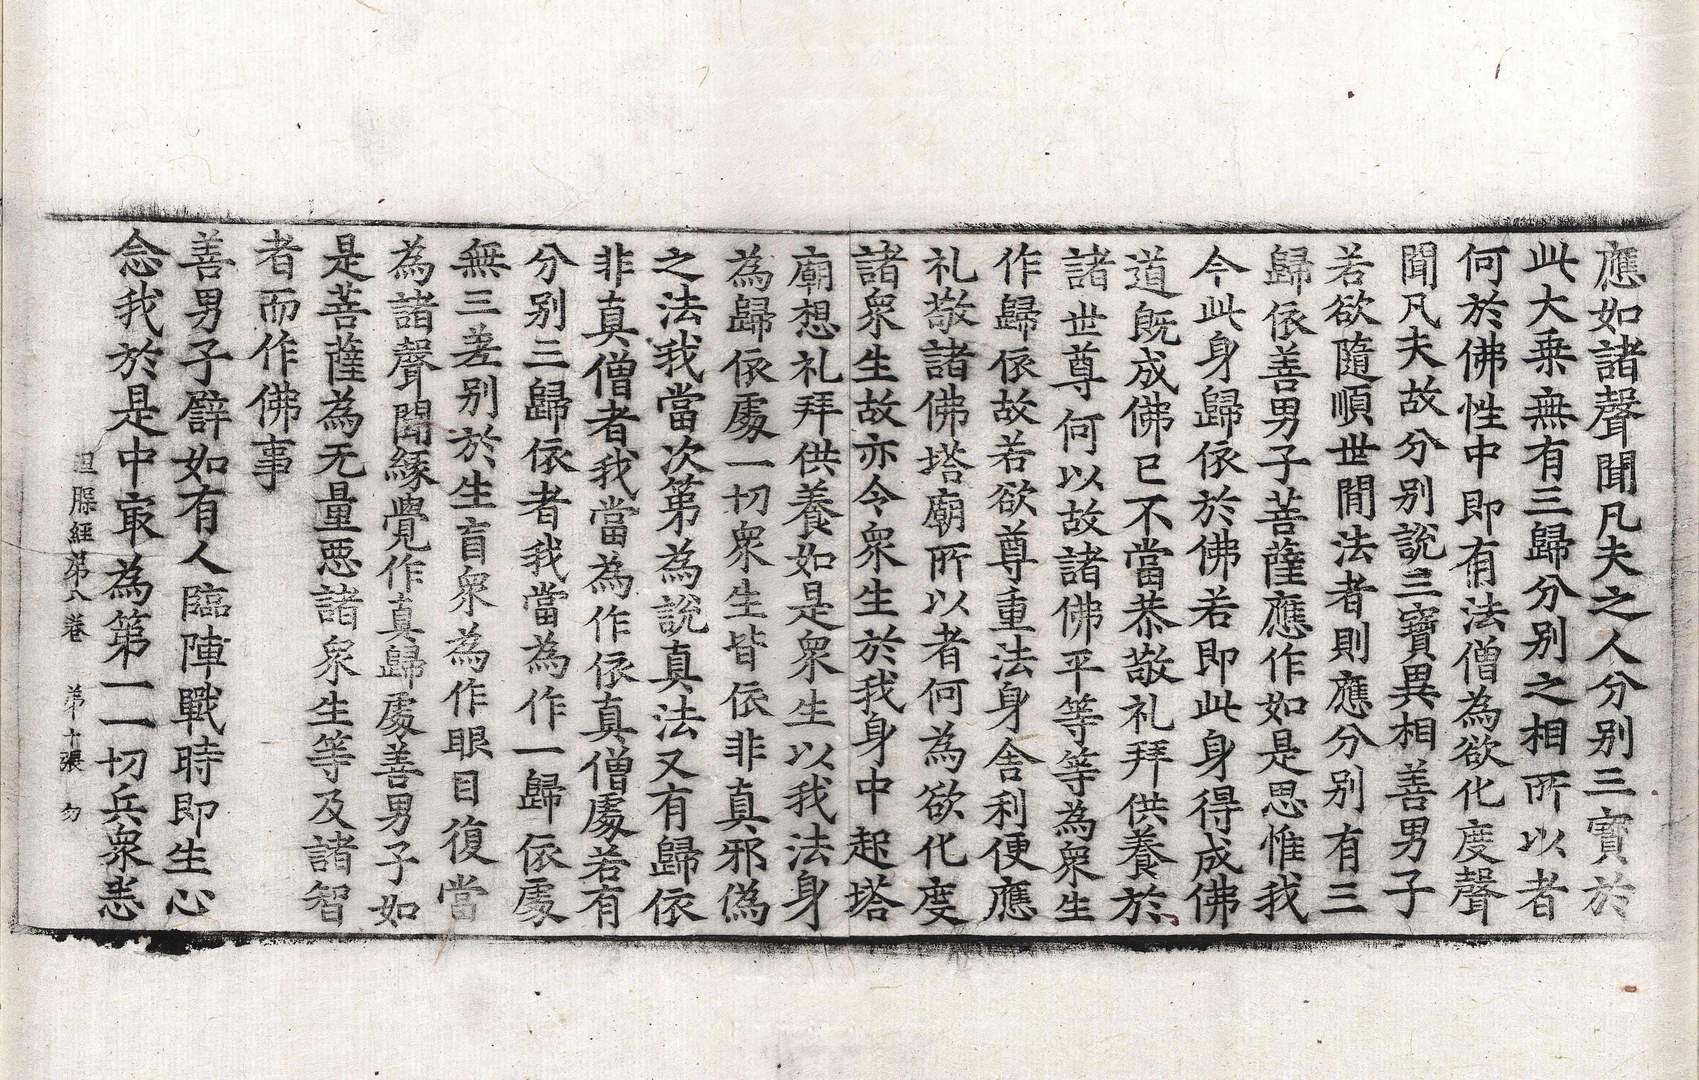 應如諸聲聞凡夫之人分别三寳於
此大乗無有三歸分别之相所以者
何於佛性中即有法僧為欲化度聲
聞凡夫故分别說三寶異相善男子
若欲隨順世間法者則應分别有三
歸依善男子菩薩應作如是思惟我
今此身歸依於佛若即此身得成佛
道旣成佛已不當恭敬礼拜供養於
諸世尊何以故諸佛平等等為衆生
作歸依故若欲尊重法身舍利便應
礼敬諸佛塔廟所以者何為欲化度
諸衆生故亦令衆生於我身中起塔
廟想礼拜供養如是衆生以我法身
為歸依處一切衆生皆依非真邪偽
之法我當次第為說真法又有歸依
非真僧者我當為作依真僧處若有
分别三歸依者我當為作一歸依處
無三差别於生盲衆為作眼目復當
為諸聲聞緣覺作真歸處善男子如
是菩薩為无量惡諸衆生等及諸智
者而作佛事
善男子譬如有人臨陣戰時即生心
念我於是中㝡為第一一切兵衆悉
經第八卷 第十張